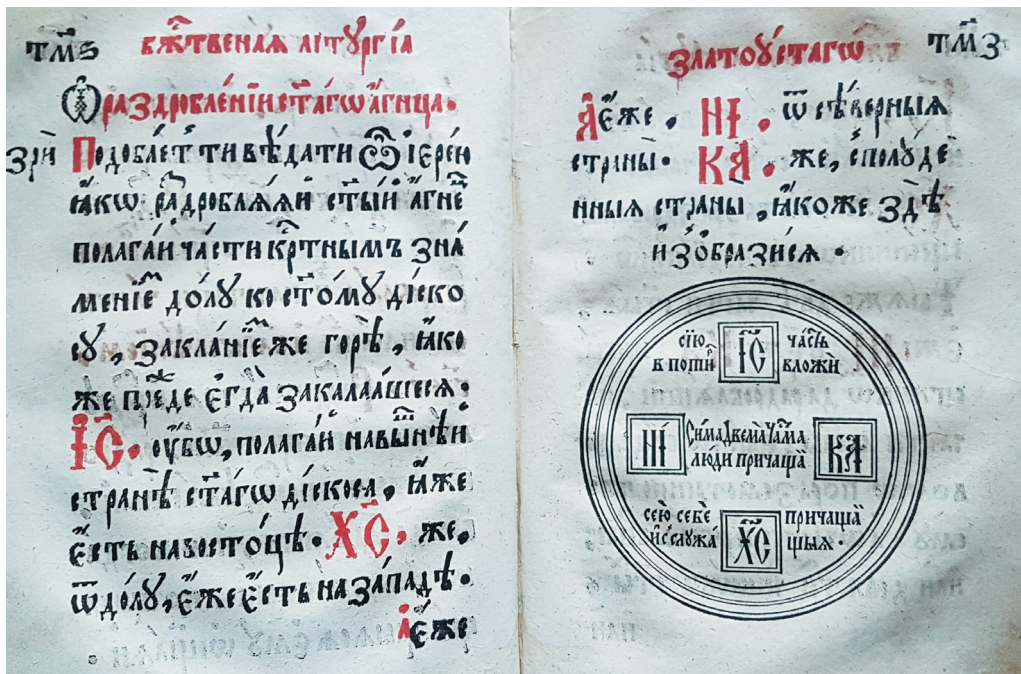 тм҃ѕ бж҃твеная лїтꙋргїа
Ѡ раздробленїи ст҃агѡ а҆гнца.
зрѝ Подобаетъ ти вѣдати ѽ їерею
ꙗ҆кѡ раⷥдробляѧй ст҃ый а҆гнеⷰ
полагай части крⷭ҇тнымъ зна
менїеⷨ долꙋ ко ст҃омꙋ дїско
ꙋ, закланїеⷨ же горѣ, ꙗ҆ко
же преⷤде є҆гда закалашеся.
І҃С. ᲂу҆бѡ, полагай на вышⷩ҇ѣй
странѣ ст҃агѡ дїскоса, ꙗ҆же
є҆сть на востоцѣ. Х҃С. же,
ѿ долꙋ, є҆же є҆сть на западѣ.
А҆ є҆же
златоꙋстагѡ тм҃з
А҆ є҆же, НІ. ѿ сѣверныя
страны. КА. же, с полꙋде
нныя страны, ꙗ҆коже здѣ
и҆зобразися.
сїю І҃С часть
в потиⷬ вложи
НІ Сима двема частⷨма КА
люди причаща
сею себе Х҃С причаща
и҆ слꙋжа щых.